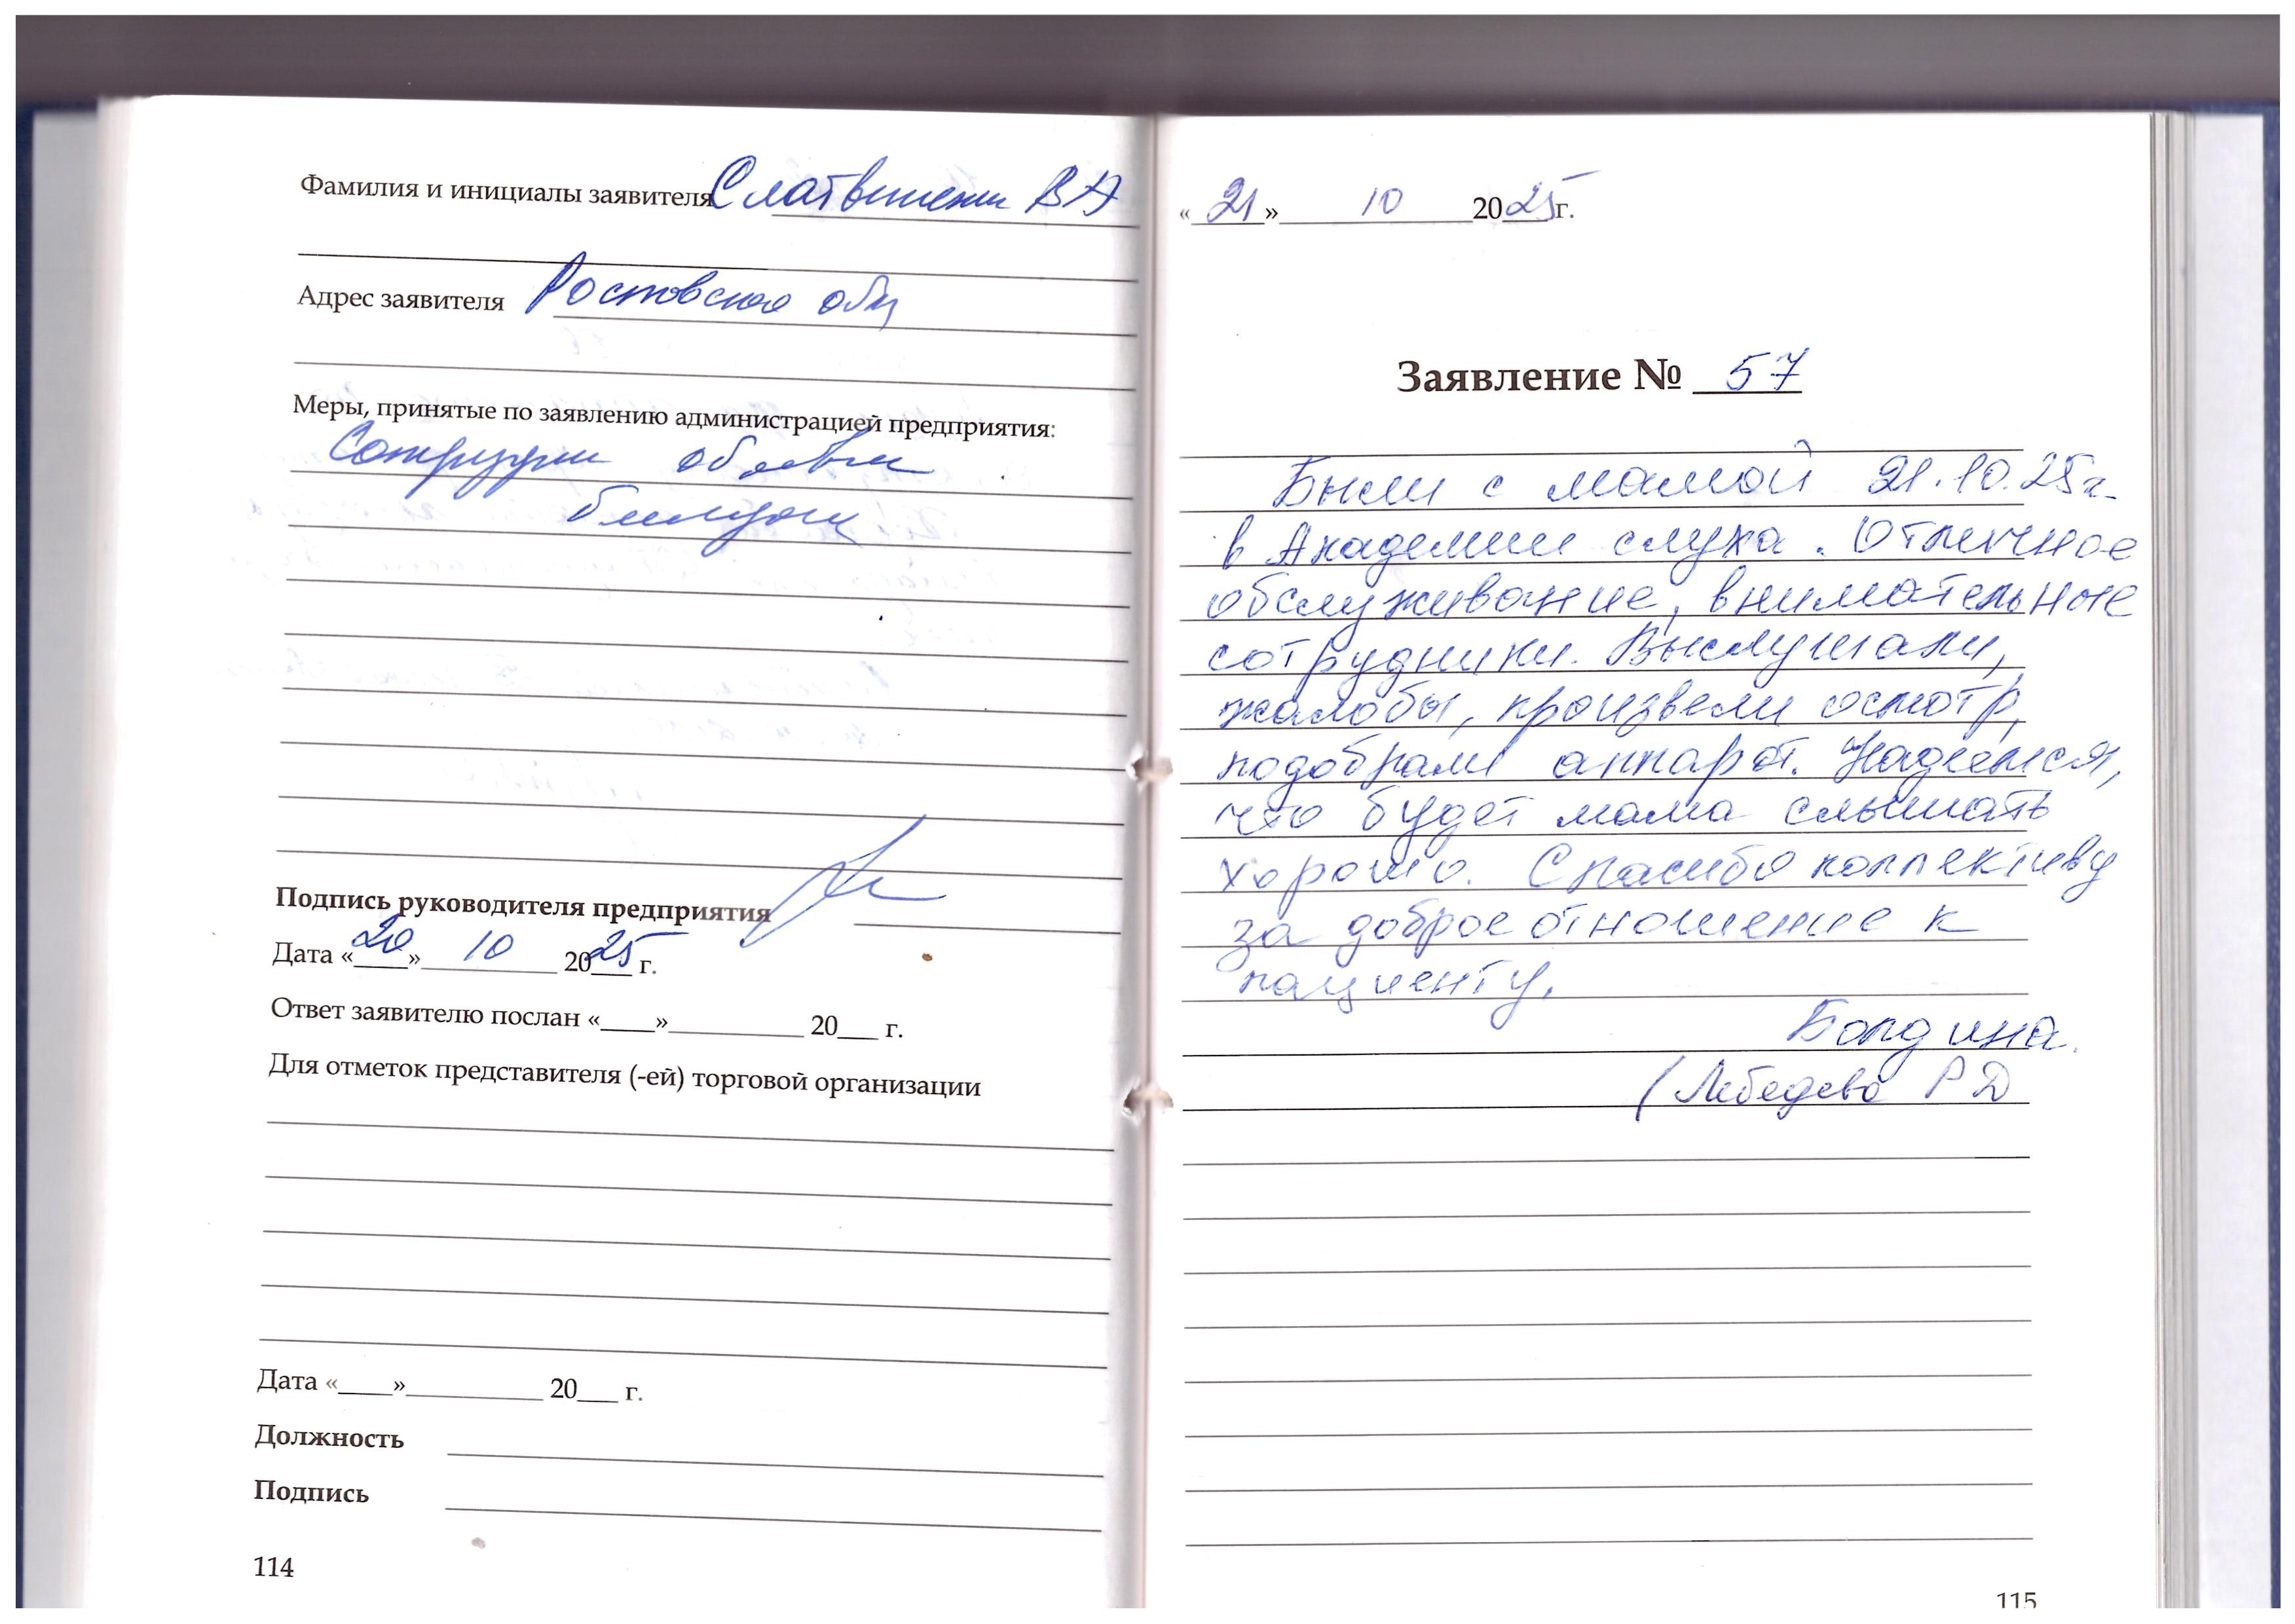 Фамилия и инициалы заявителя В А
Адрес заявителя Ростовская обл
Меры, принятые по заявлению администрацией предприятия:
Подпись руководителя предприятия
Дата «20» 10 2025 г.
Ответ заявителю послан «____»__________ 20___ г.
Для отметок представителя (-ей) торговой организации
Дата «____»__________ 20___ г.
Должность
Подпись
114
«21» 10 2025 г.
Заявление № 57
Были с мамой 21.10.25г.
в Академии слуха. Отличное
обслуживание, внимательные
сотрудники. Выслушали,
жалобы, произвели осмотр,
подобрали аппарат. Надеемся,
что будет мама слышать
хорошо. Спасибо коллективу
за доброе отношение к
пациенту.
Болдина.
(Лебедева Р Д
115